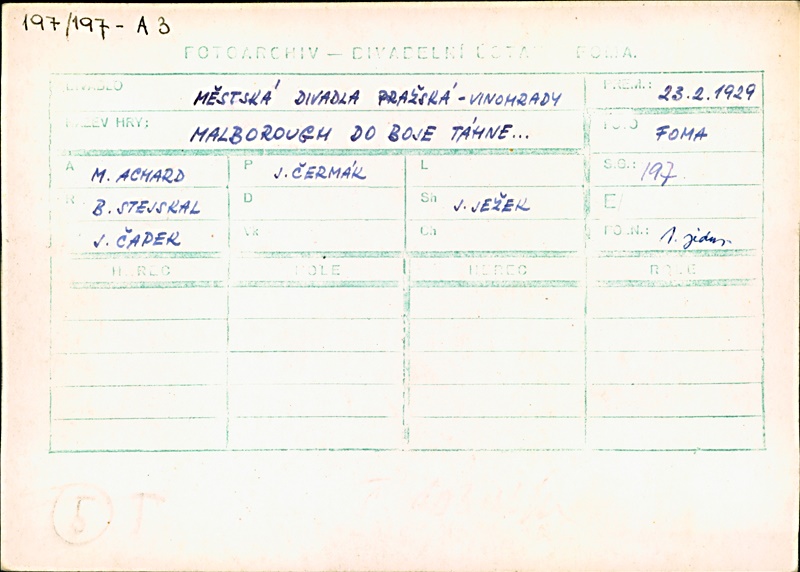 197/197 - A 3
FOTOARCHIV — DIVADELNÍ ÚSTAV FOMA.
DIVADLO MĚSTSKÁ DIVADLA PRAŽSKÁ - VINOHRADY PREM.: 23.2.1929
NÁZEV HRY: MALBOROUGH DO BOJE TÁHNE... FOTO FOMA
A M. ACHARD P J. ČERMÁK L S.G.: 197
R B. STEJSKAL D Sh J. JEŽEK E/
J. ČAPEK Vk Ch POZN.: 1. jedn.
HEREC ROLE HEREC ROLE